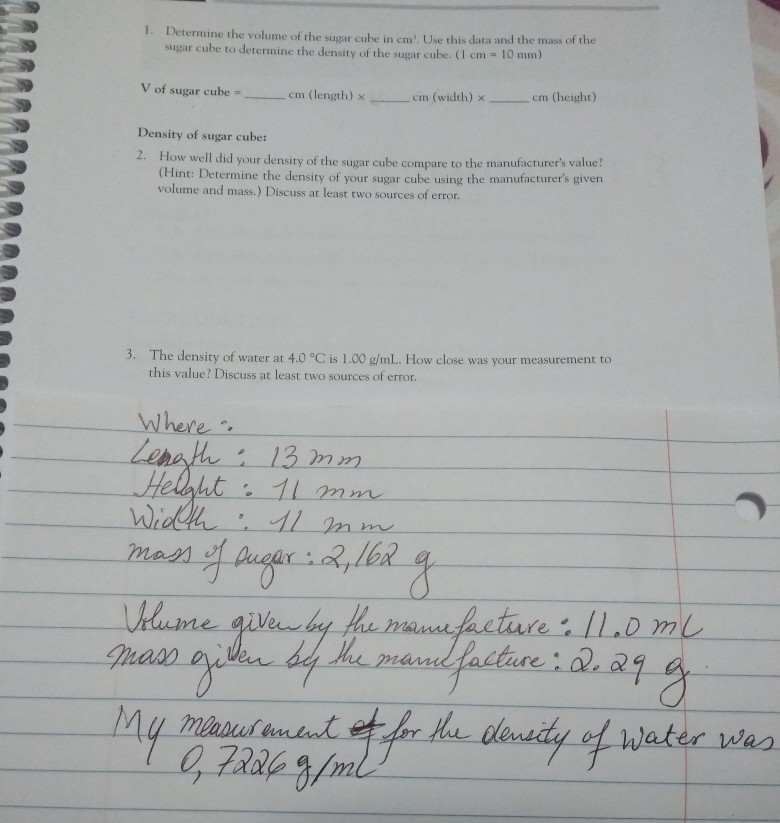 1. Determine the volume of the sugar cube in cm³. Use this data and the mass of the
sugar cube to determine the density of the sugar cube. (1 cm = 10 mm)
V of sugar cube = ______ cm (length) × ______ cm (width) × ______ cm (height)
Density of sugar cube:
2. How well did your density of the sugar cube compare to the manufacturer's value?
(Hint: Determine the density of your sugar cube using the manufacturer's given
volume and mass.) Discuss at least two sources of error.
3. The density of water at 4.0 °C is 1.00 g/mL. How close was your measurement to
this value? Discuss at least two sources of error.
Where :
Length : 13 mm
Height : 11 mm
Width : 11 mm
mass of sugar : 2,162 g
Volume given by the manufacture : 11.0 mL
mass given by the manufacture : 2.29 g
My measurement for the density of water was
0,7226 g/mL